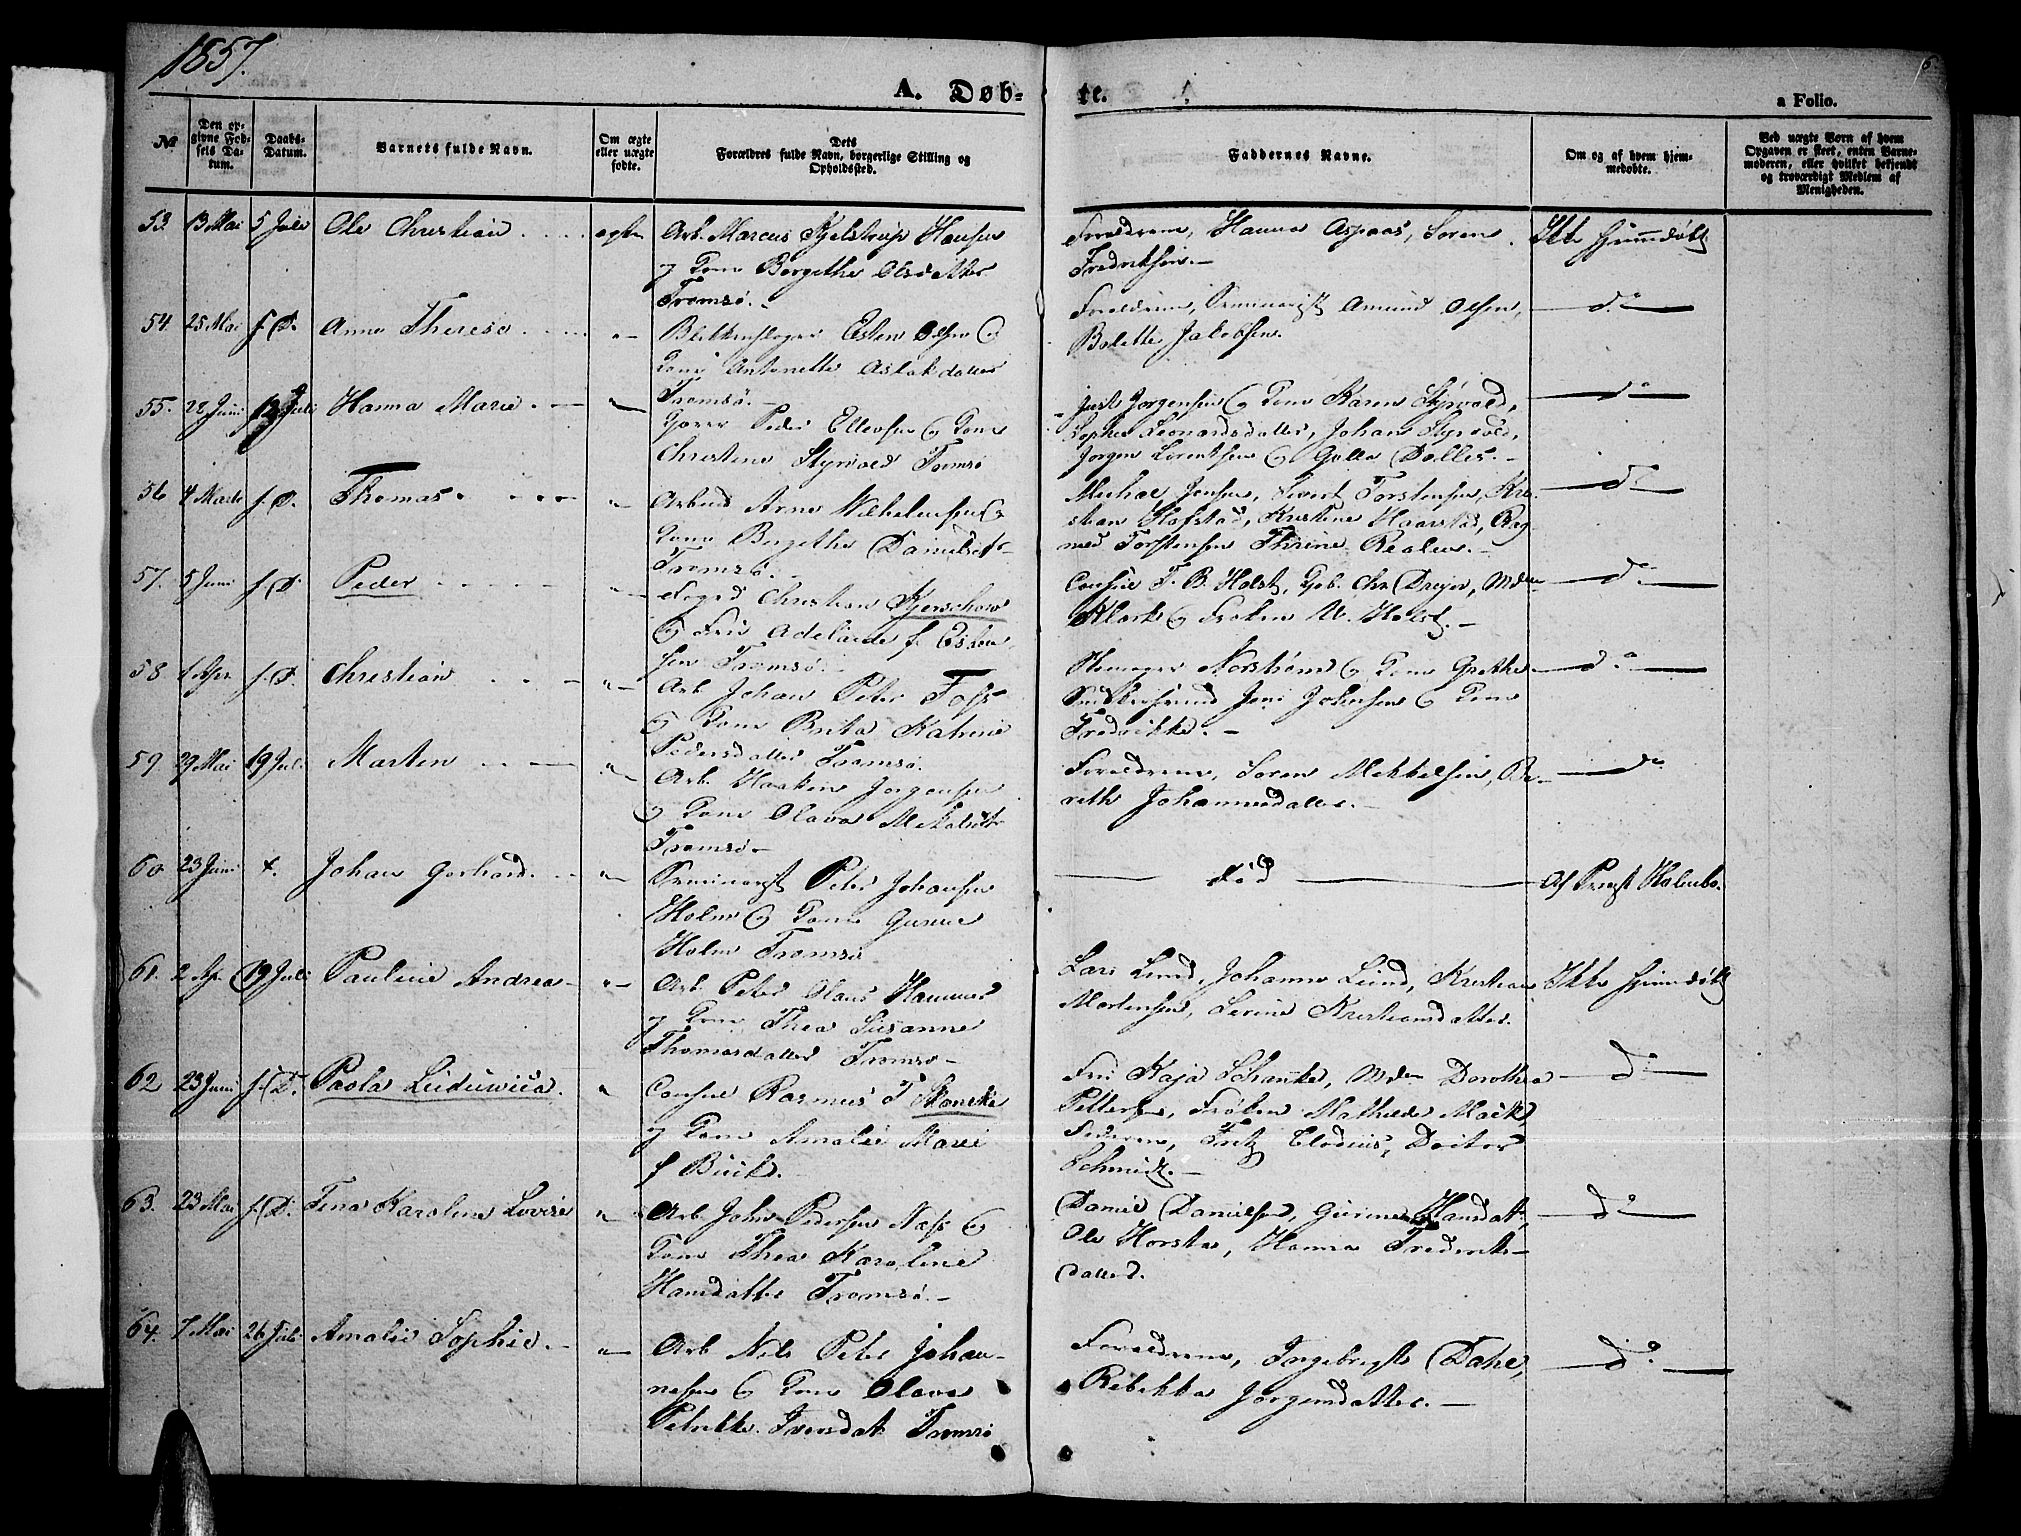 1857.
A. Døb-
te.
a Folio.
№
Den op-
givne Fød-
sels Da-
tum.
Daabs-
Datum.
Barnets fulde Navn.
Om ægte
eller uægte
fødte.
Dets
Forældres fulde Navn, borgerlige Stilling og
Opholdssted.
Faddernes Navne.
Om og af hvem hjem-
medøbte.
Ved uægte Børn af hvem
Opgaven er skeet, enten Barne-
moderen, eller hvilket bekjendt
og troværdigt Medlem af
Menigheden.
53. 13 Mai 5 Juli Ole Christian ægte
Arb. Marcus Kjelstrup Hansen
og Kone Bergithe Olsdatter
Tromsø.
Forældrene, Hanna Aspaas, Søren
Fredriksen.
Ikke hjemmedøbt
54. 25 Mai s. D. Anne Therese
Olsen
Kone Antonette Aslakdatter
Tromsø.
Forældrene, Seminarist Amund Olsen,
Bolette Jakobsen.
do
55. 22 Juni 12 Juli Hanna Marie
Peder Ellevsen & Kone
Christine Styrvold Tromsø
Just Jørgensen & Kone Karen Styrvold,
Sophie Leonardsdatter, Johan Styrvold,
Jørgen Lorentsen
do
56 4 Marts s. D. Thomas
Arbeid Arne
Kone Bergithe Danielsdtr
Tromsø.
Michael Jensen, Sivert Torstensen, Kri-
stian Hofstad, Kristine Haarstad, Rag-
Torstensen
do
57. 5 Juni s. D. Peder
Foged Christian Kjerschow
& Fru Adelaide f. Esben-
sen Tromsø.
Consul T. B. Holst, Chr Dreyer, Mdm
Mack & Frøken M. Holst.
do
58 1 Apr. s. D. Christian
Arb. Johan Peter
& Kone Brita Katrine
Pedersdatter Tromsø.
Norstrøm & Kone Grethe
Jens Johnsen & Kone
Fredrikke.
do
59. 29 Mai 19 Juli Morten
Arb. Haakon Jørgensen
& Kone Olava
Tromsø.
Forældrene, Søren Mikkelsen, Be-
reth Johannesdatter.
do
60 23 Juni Johan Gerhard.
Seminarist Peter Johansen
Holm & Kone
Holm Tromsø
død
Af Præst Holmbo.
61. 2 Ap. 19 Juli Pauline Andrea
Arb. Peter Hammer
og Kone Thea Susanne
Thomasdatter Tromsø
Lars Lund, Johanne Lund, Kristian
Mortensen, Serine Kristiansdatter.
Ikke hjemmedøbt
62 23 Juni s. D. Paola Luduwica.
Consul Rasmus
og Kone Amalie Marie
f Buck.
Fru Kaja Schanke, Mdm Dorothea
Pettersen, Frøken Mathilde Mack,
Faderen, Fritz Clodius, Doctor
Schmidt.
do
63. 23 Mai s. D. Tina Karoline Lovise
Arb. John Pedersen Næss &
Kone Thea Karoline
Hansdatter Tromsø.
Daniel Danielsen, Hansdat,
Ole Horsta, Hanna Fredriks-
datter.
do
64. 7 Mai 26 Juli Amalie Sophie.
Arb Nils Peter Johan-
nesen & Kone Olava
Petrikke Iversdat. Tromsø
Forældrene, Ingebrigt Dahl,
Rebekka Jørgensdatter.
do